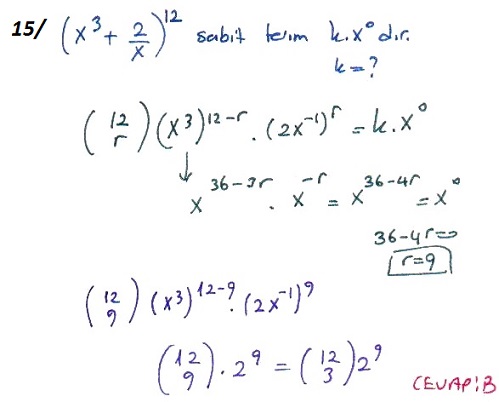 15/ (x³ + 2/x)¹² sabit terim k.x⁰ dır.
k=?
(12 r) (x³)¹²⁻ʳ . (2x⁻¹)ʳ = k.x⁰
↓
x³⁶⁻³ʳ . x⁻ʳ = x³⁶⁻⁴ʳ = x⁰
36-4r=0
r=9
(12 9) (x³)¹²⁻⁹ . (2x⁻¹)⁹
(12 9) . 2⁹ = (12 3) 2⁹
CEVAP:B